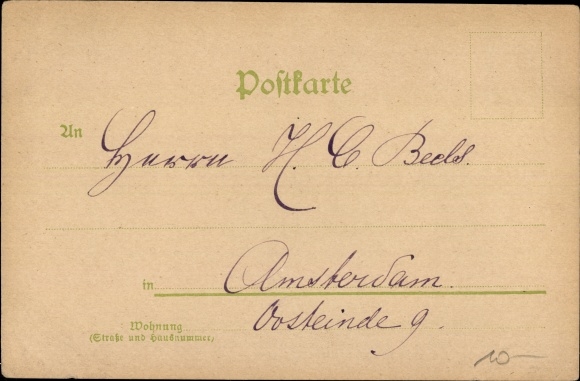 Postkarte
An Herrn H. C. Beels.
in Amsterdam.
Wohnung
(Straße und Hausnummer)
Oosteinde 9.
10-